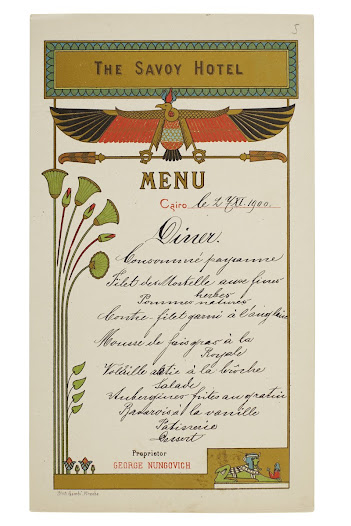 5
THE SAVOY HOTEL
MENU
Cairo, le 2 XII. 1900.
Dîner.
Consommé paysanne
Filet des Mostelle aux fines
herbes
Pommes natures
Contre-filet garni à l'anglaise
Mousse de foie gras à la
Royale
Volaille rôtie à la broche
Salade
Aubergines frites au gratin
Bavarois à la vanille
Patisserie
Dessert
Proprietor
GEORGE NUNGOVICH